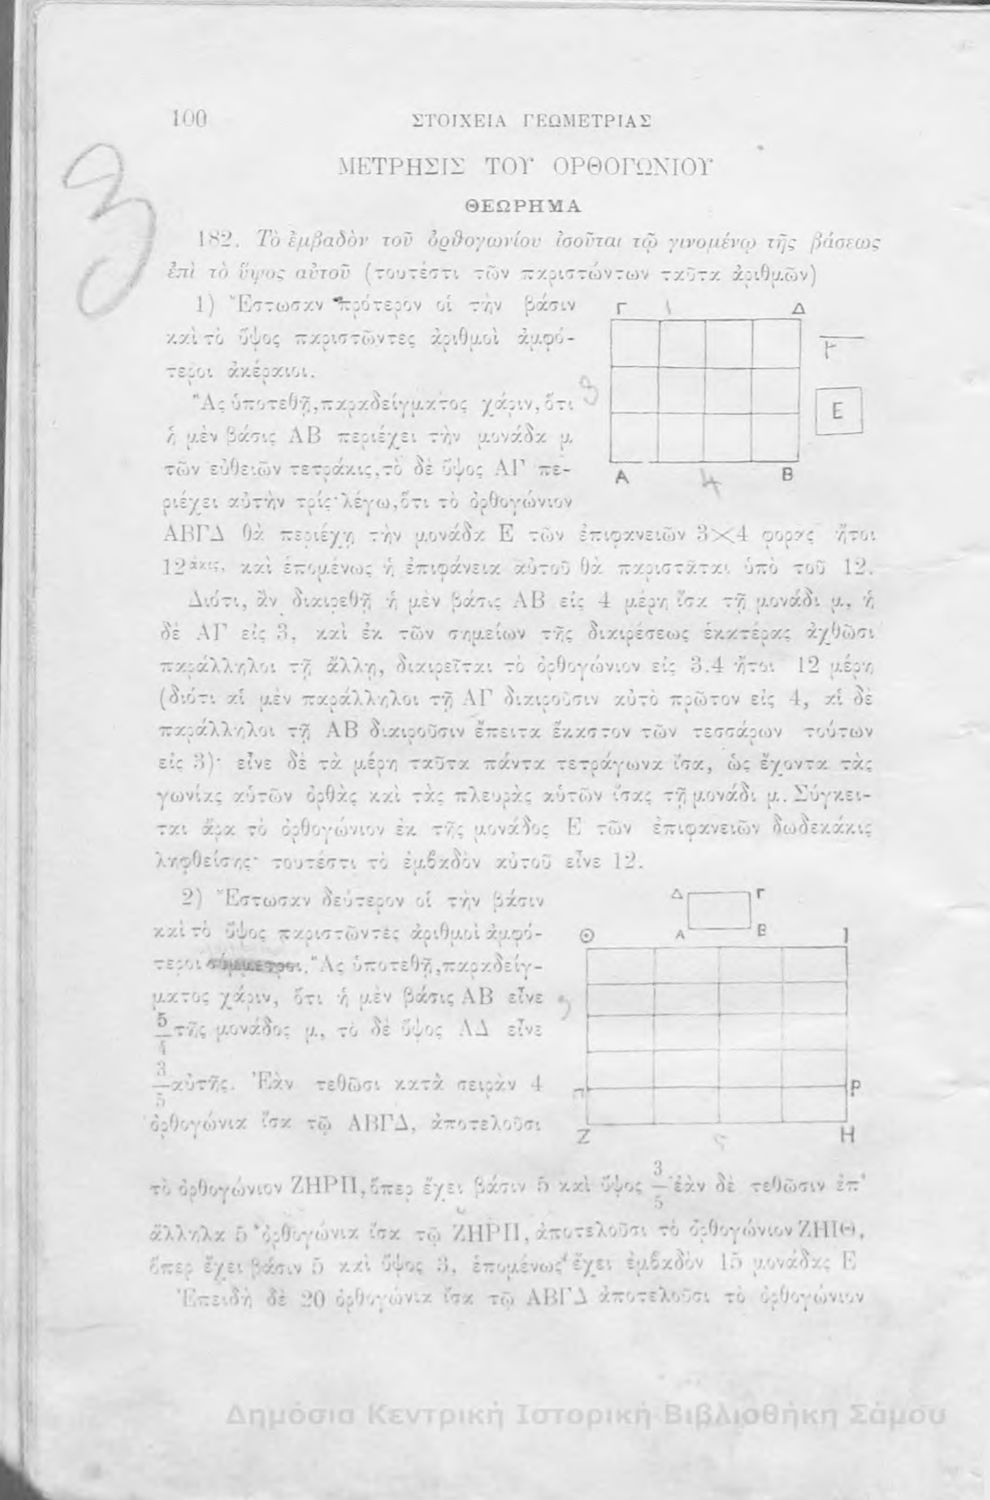 100 ΣΤΟΙΧΕΙΑ ΓΕΩΜΕΤΡΙΑΣ
3
ΜΕΤΡΗΣΙΣ ΤΟΥ ΟΡΘΟΓΩΝΙΟΥ
ΘΕΩΡΗΜΑ
182. Τὸ ἐμβαδὸν τοῦ ὀρθογωνίου ἰσοῦται τῷ γινομένῳ τῆς βάσεως
ἐπὶ τὸ ὕψος αὐτοῦ (τουτέστι τῶν παριστώντων ταῦτα ἀριθμῶν)
1) Ἔστωσαν πρότερον οἱ τὴν βάσιν
καὶ τὸ ὕψος παριστῶντες ἀριθμοὶ ἀμφό-
τεροι ἀκέραιοι.
Ἄς ὑποτεθῇ, παραδείγματος χάριν, ὅτι
ἡ μὲν βάσις ΑΒ περιέχει τὴν μονάδα μ
τῶν εὐθειῶν τετράκις, τὸ δὲ ὕψος ΑΓ πε-
ριέχει αὐτὴν τρίς· λέγω, ὅτι τὸ ὀρθογώνιον
Γ Δ
μ
3
Ε
Α 4 Β
ΑΒΓΔ θὰ περιέχῃ τὴν μονάδα Ε τῶν ἐπιφανειῶν 3×4 φορὰς ἤτοι
12άκις, καὶ ἑπομένως ἡ ἐπιφάνεια αὐτοῦ θὰ παριστᾶται ὑπὸ τοῦ 12.
Διότι, ἂν διαιρεθῇ ἡ μὲν βάσις ΑΒ εἰς 4 μέρη ἴσα τῇ μονάδι μ, ἡ
δὲ ΑΓ εἰς 3, καὶ ἐκ τῶν σημείων τῆς διαιρέσεως ἑκατέρας ἀχθῶσι
παράλληλοι τῇ ἄλλῃ, διαιρεῖται τὸ ὀρθογώνιον εἰς 3.4 ἤτοι 12 μέρη
(διότι αἱ μὲν παράλληλοι τῇ ΑΓ διαιροῦσιν αὐτὸ πρῶτον εἰς 4, αἱ δὲ
παράλληλοι τῇ ΑΒ διαιροῦσιν ἔπειτα ἕκαστον τῶν τεσσάρων τούτων
εἰς 3)· εἶνε δὲ τὰ μέρη ταῦτα πάντα τετράγωνα ἴσα, ὡς ἔχοντα τὰς
γωνίας αὐτῶν ὀρθὰς καὶ τὰς πλευρὰς αὐτῶν ἴσας τῇ μονάδι μ. Σύγκει-
ται ἄρα τὸ ὀρθογώνιον ἐκ τῆς μονάδος Ε τῶν ἐπιφανειῶν δωδεκάκις
ληφθείσης· τουτέστι τὸ ἐμβαδὸν αὐτοῦ εἶνε 12.
2) Ἔστωσαν δεύτερον οἱ τὴν βάσιν
καὶ τὸ ὕψος παριστῶντες ἀριθμοὶ ἀμφό-
τεροι σύμμετροι. Ἄς ὑποτεθῇ, παραδείγ-
ματος χάριν, ὅτι ἡ μὲν βάσις ΑΒ εἶνε
5/4 τῆς μονάδος μ, τὸ δὲ ὕψος ΑΔ εἶνε
3/5 αὐτῆς. Ἐὰν τεθῶσι κατὰ σειρὰν 4
ὀρθογώνια ἴσα τῷ ΑΒΓΔ, ἀποτελοῦσι
Δ Γ
Α Β
Θ Ι
Π Ρ
Ζ Η
τὸ ὀρθογώνιον ΖΗΡΠ, ὅπερ ἔχει βάσιν 5 καὶ ὕψος 3/5· ἐὰν δὲ τεθῶσιν ἐπ'
ἄλληλα 5 ὀρθογώνια ἴσα τῷ ΖΗΡΠ, ἀποτελοῦσι τὸ ὀρθογώνιον ΖΗΙΘ,
ὅπερ ἔχει βάσιν 5 καὶ ὕψος 3, ἑπομένως ἔχει ἐμβαδὸν 15 μονάδας Ε
Ἐπειδὴ δὲ 20 ὀρθογώνια ἴσα τῷ ΑΒΓΔ ἀποτελοῦσι τὸ ὀρθογώνιον
Δημόσια Κεντρική Ιστορική Βιβλιοθήκη Σάμου